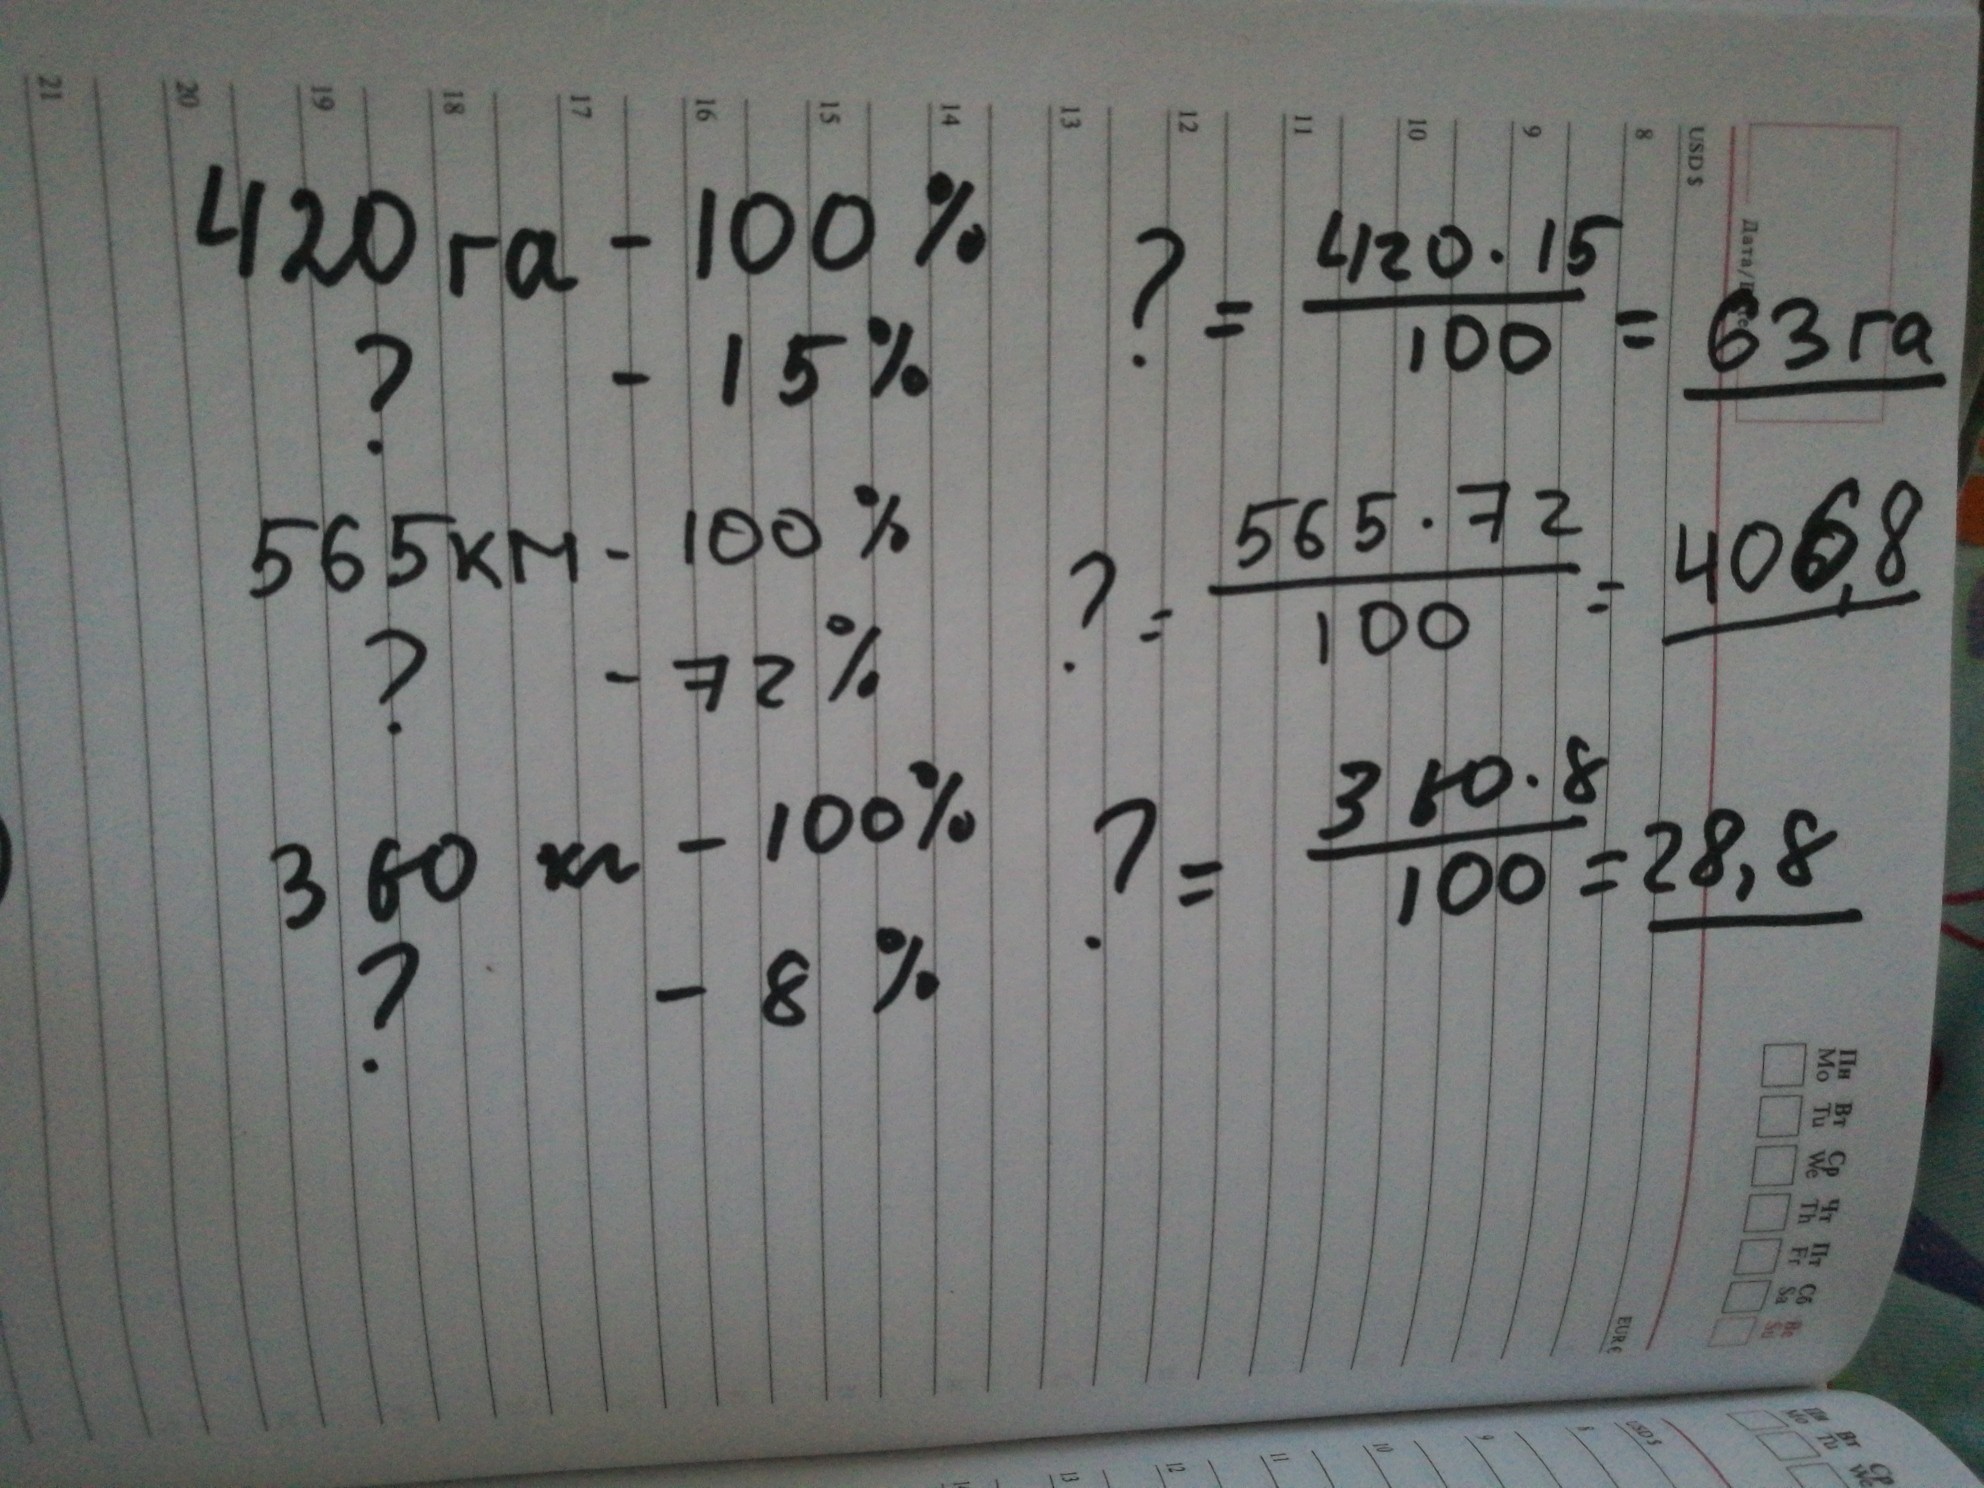 420 га - 100 %
? - 15 %
? = 420 · 15 / 100 = 63 га
565 км - 100 %
? - 72 %
? = 565 · 72 / 100 = 406,8
360 кг - 100 %
? - 8 %
? = 360 · 8 / 100 = 28,8
USD $
8
9
10
11
12
13
14
15
16
17
18
19
20
21
EUR €
Пн Вт Ср Чт Пт Сб Вс
Mo Tu We Th Fr Sa Su
Пн Вт Ср
Mo Tu We
USD $
8
9
10
11
12
13